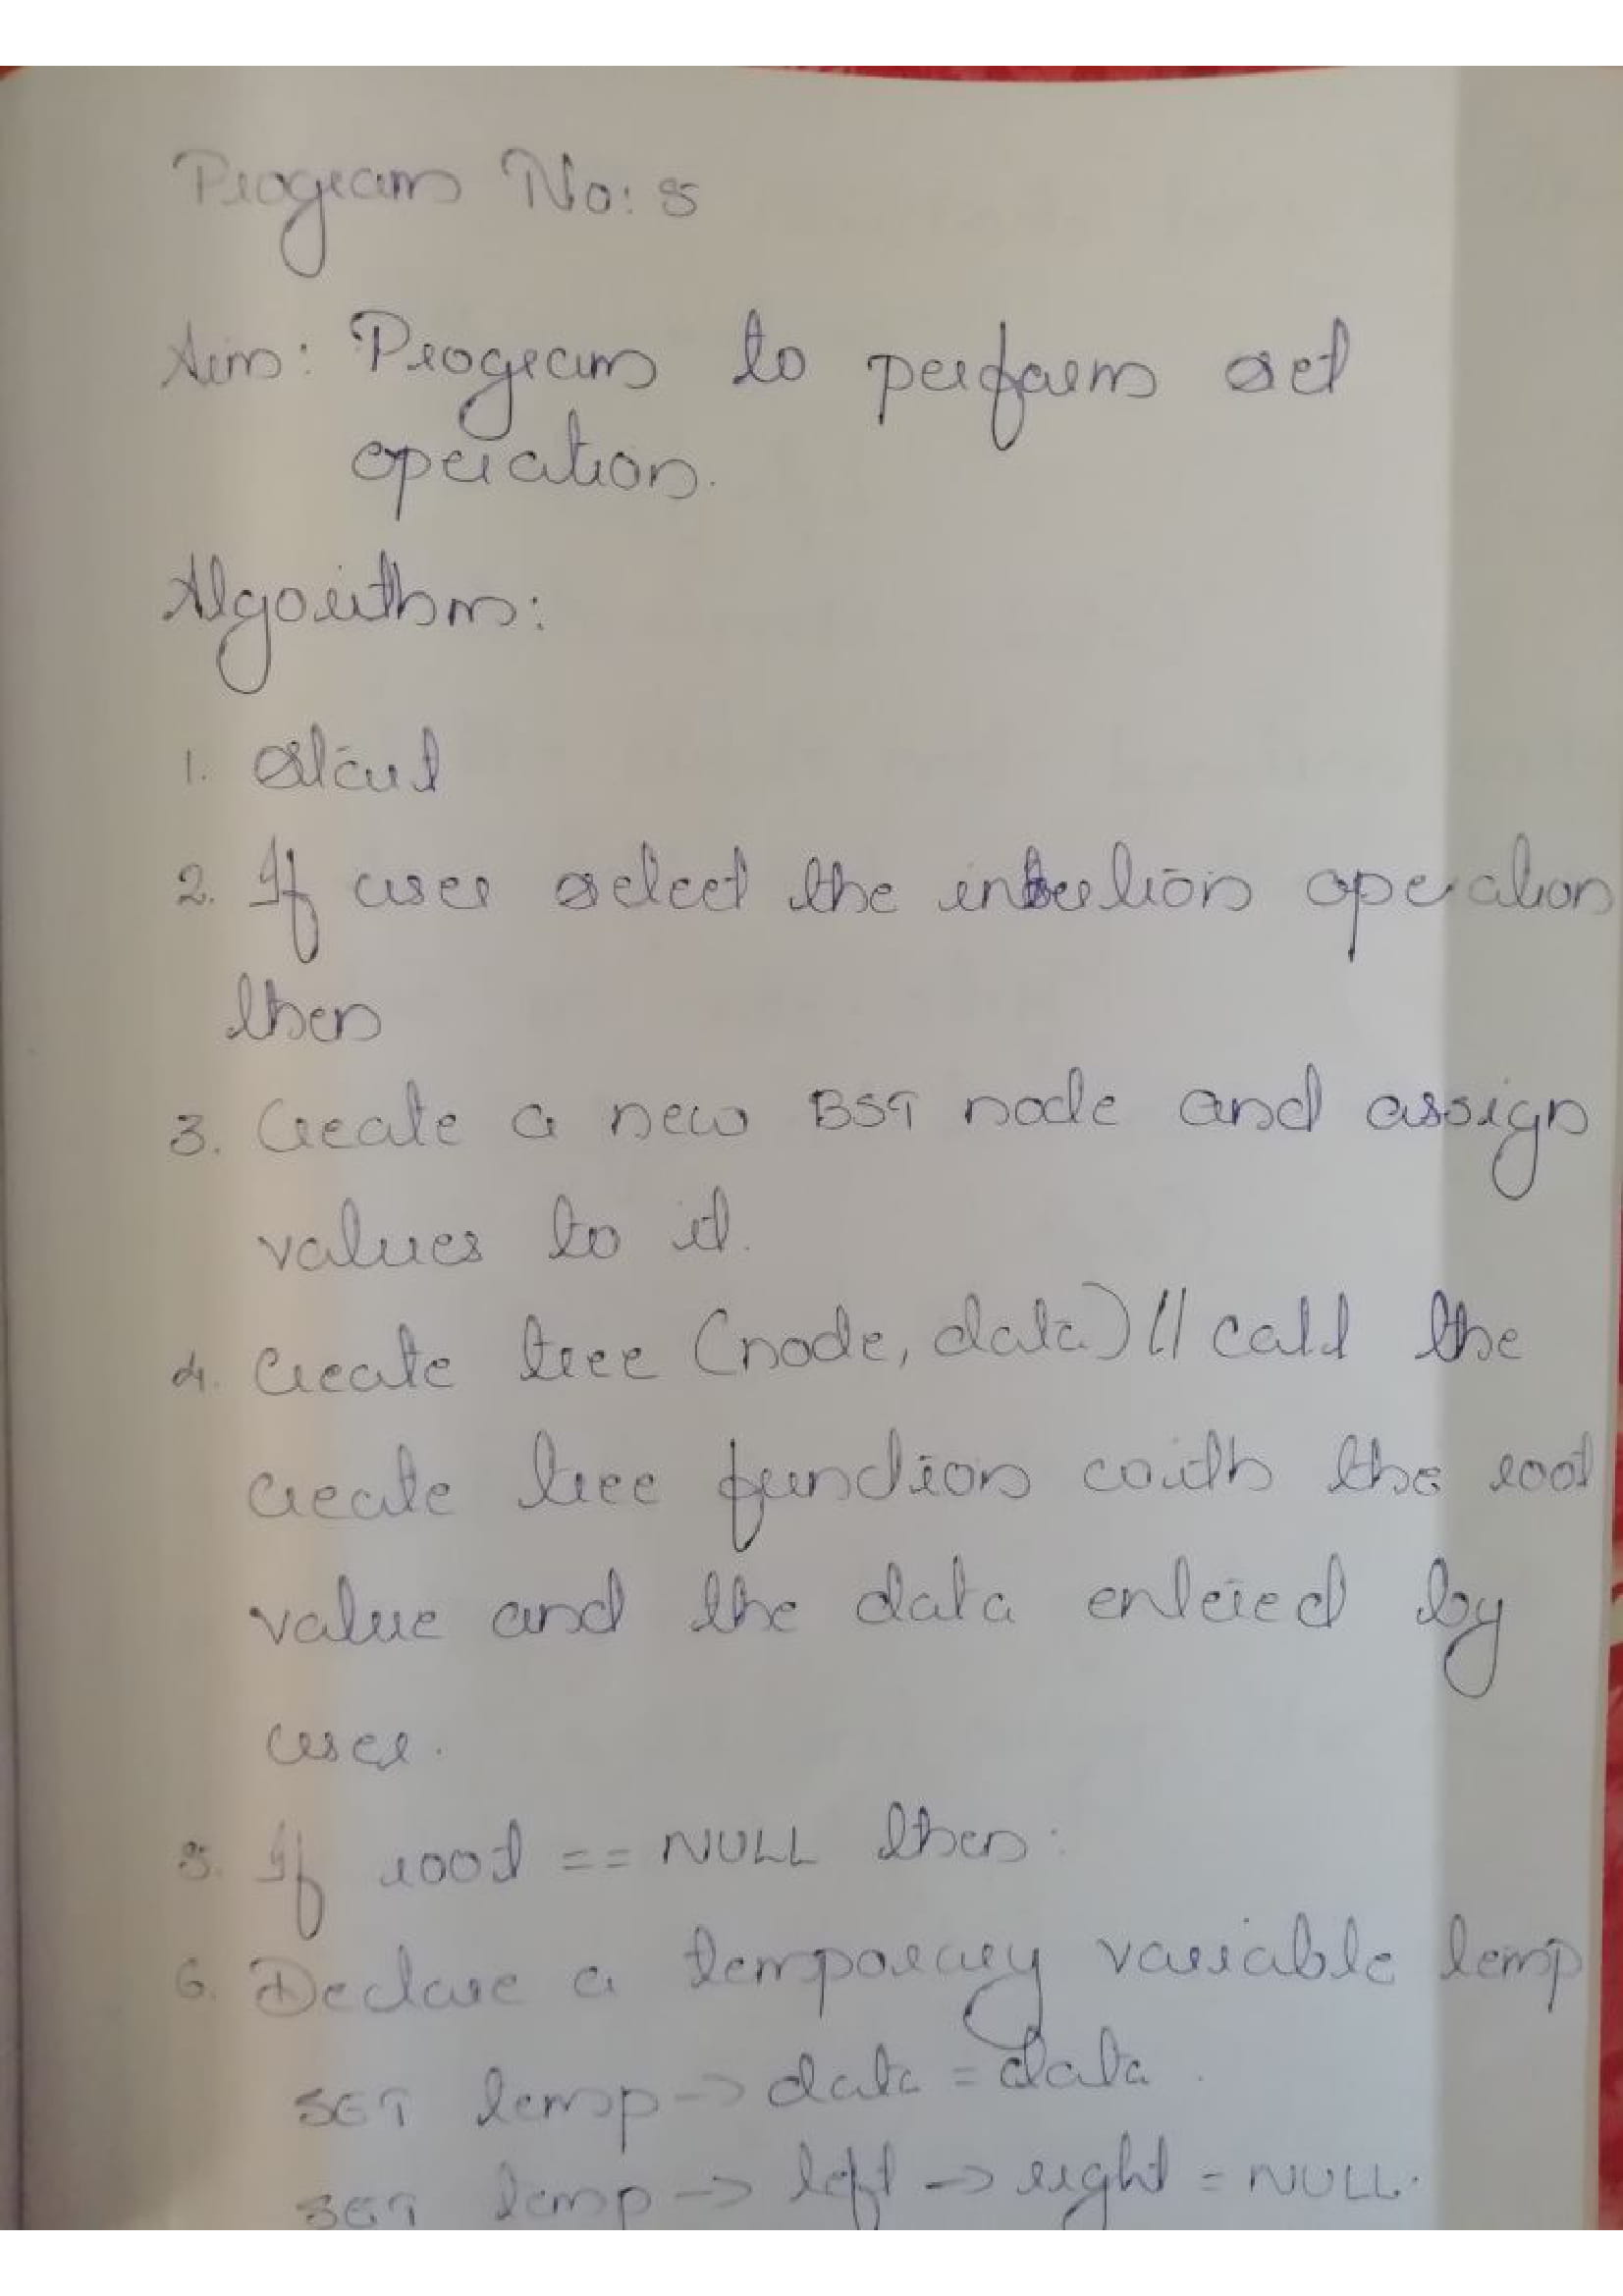 Program No: 5
Aim: Program to perform set
operation.
Algorithm:
1. Start
2. If user select the insertion operation
then
3. Create a new BST node and assign
values to it.
4. Create tree (node, data) // call the
create tree function with the root
value and the data entered by
user.
5. If root == NULL then:
6. Declare a temporary variable temp
SET temp -> data = data.
SET temp -> left -> right = NULL.